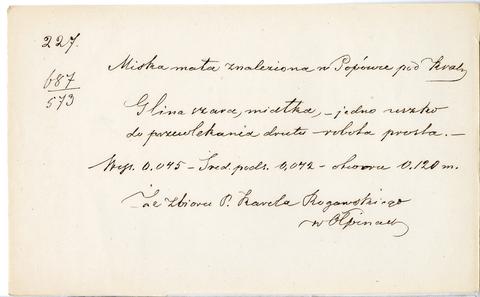 227.
687
573
Miska mała znaleziona w Popówce pod
Glina szara, miałka, – jedno uszko
do przewlekania drutu – robota prosta. –
Wys. 0.045 – Śred. pods. 0,042 – otworu 0.120 m.
Ze zbioru P. Karola Rogawskiego
w Ołpinach